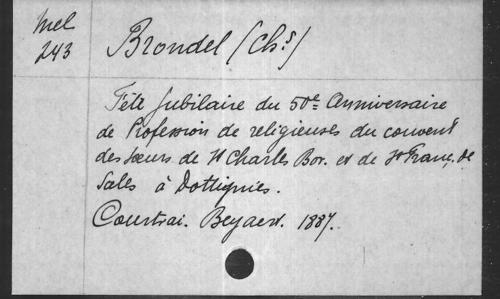 Mel
243
Brondel (Chs)
Fête Jubilaire du 50e Anniversaire
de Profession de religieuses du couvent
des Sœurs de St Charles Bor. et de St Franç. de
Sales à Dottignies.
Courtrai. Beyaert. 1887.